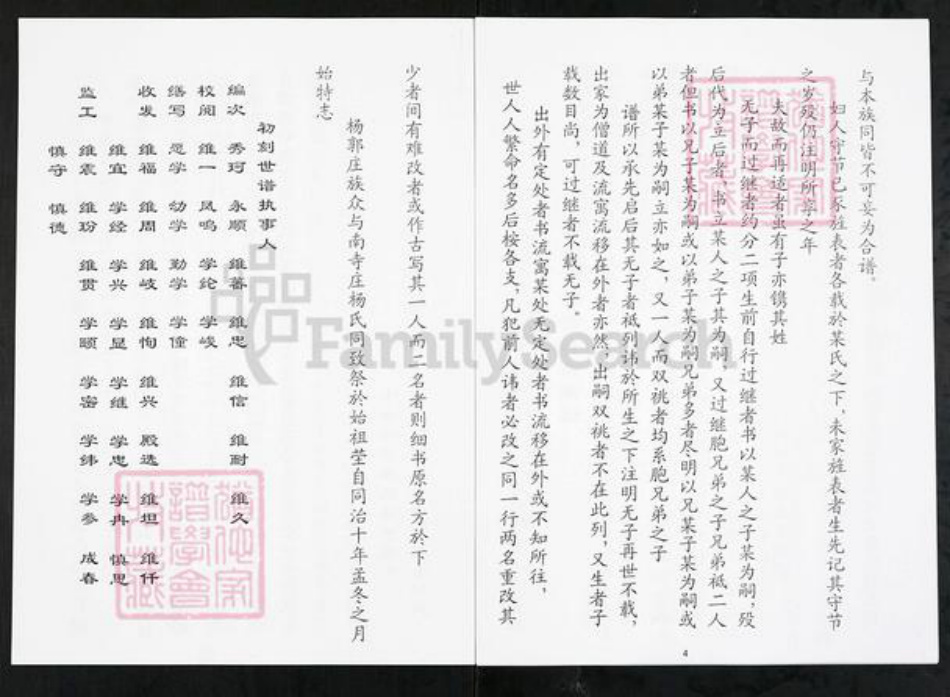 与本族同皆不可妄为合谱。
妇人守节已承旌表者各载於某氏之下，未家旌表者生先记其守节
之岁殁仍注明所享之年
夫故而再适者虽有子亦镌其姓
无子而过继者约分二项生前自行过继者书以某人之子某为嗣，殁
后代为立后者，书立某人之子其为嗣，又过继胞兄弟之子兄弟祗二人
者但书以兄子某为嗣或以弟子某为嗣兄弟多者尽明以兄某子某为嗣或
以弟某子某为嗣立亦如之，又一人而双祧者均系胞兄弟之子
谱所以承先启后其无子者祗列讳於所生之下注明无子再世不载，
出家为僧道及流寓流移在外者亦然，出嗣双祧者不在此列，又生者子
载数目尚，可过继者不载无子。
出外有定处者书流寓某处无定处者书流移在外或不知所往，
世人人繁命名多后桉各支，凡犯前人讳者必改之同一行两名重改其
4
少者间有难改者或作古写其一人而二名者则细书原名方於下
杨郭庄族众与南寺庄杨氏同致祭於始祖茔自同治十年孟冬之月
始特志
初刻世谱执事人
编次 秀珂 永顺 维蕃 维忠 维信 维耐 维久
校阅 维一 凤鸣 学纶 学峻
缮写 思学 幼学 勤学 学僮
收发 维福 维周 维岐 维恂 维兴 殿选 维坦 维仟
维宜 学经 学兴 学显 学继 学忠 学冉 慎思
监工 维震 维玢 维贯 学颐 学密 学纬 学参 成春
慎守 慎德
FamilySearch